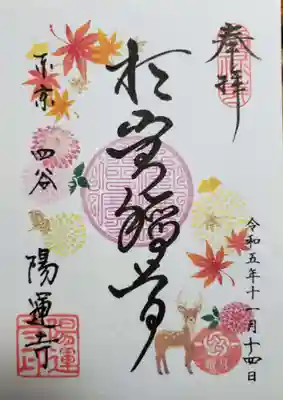 奉拝
於岩稲荷
令和五年十一月十四日
東京 四谷
陽運寺